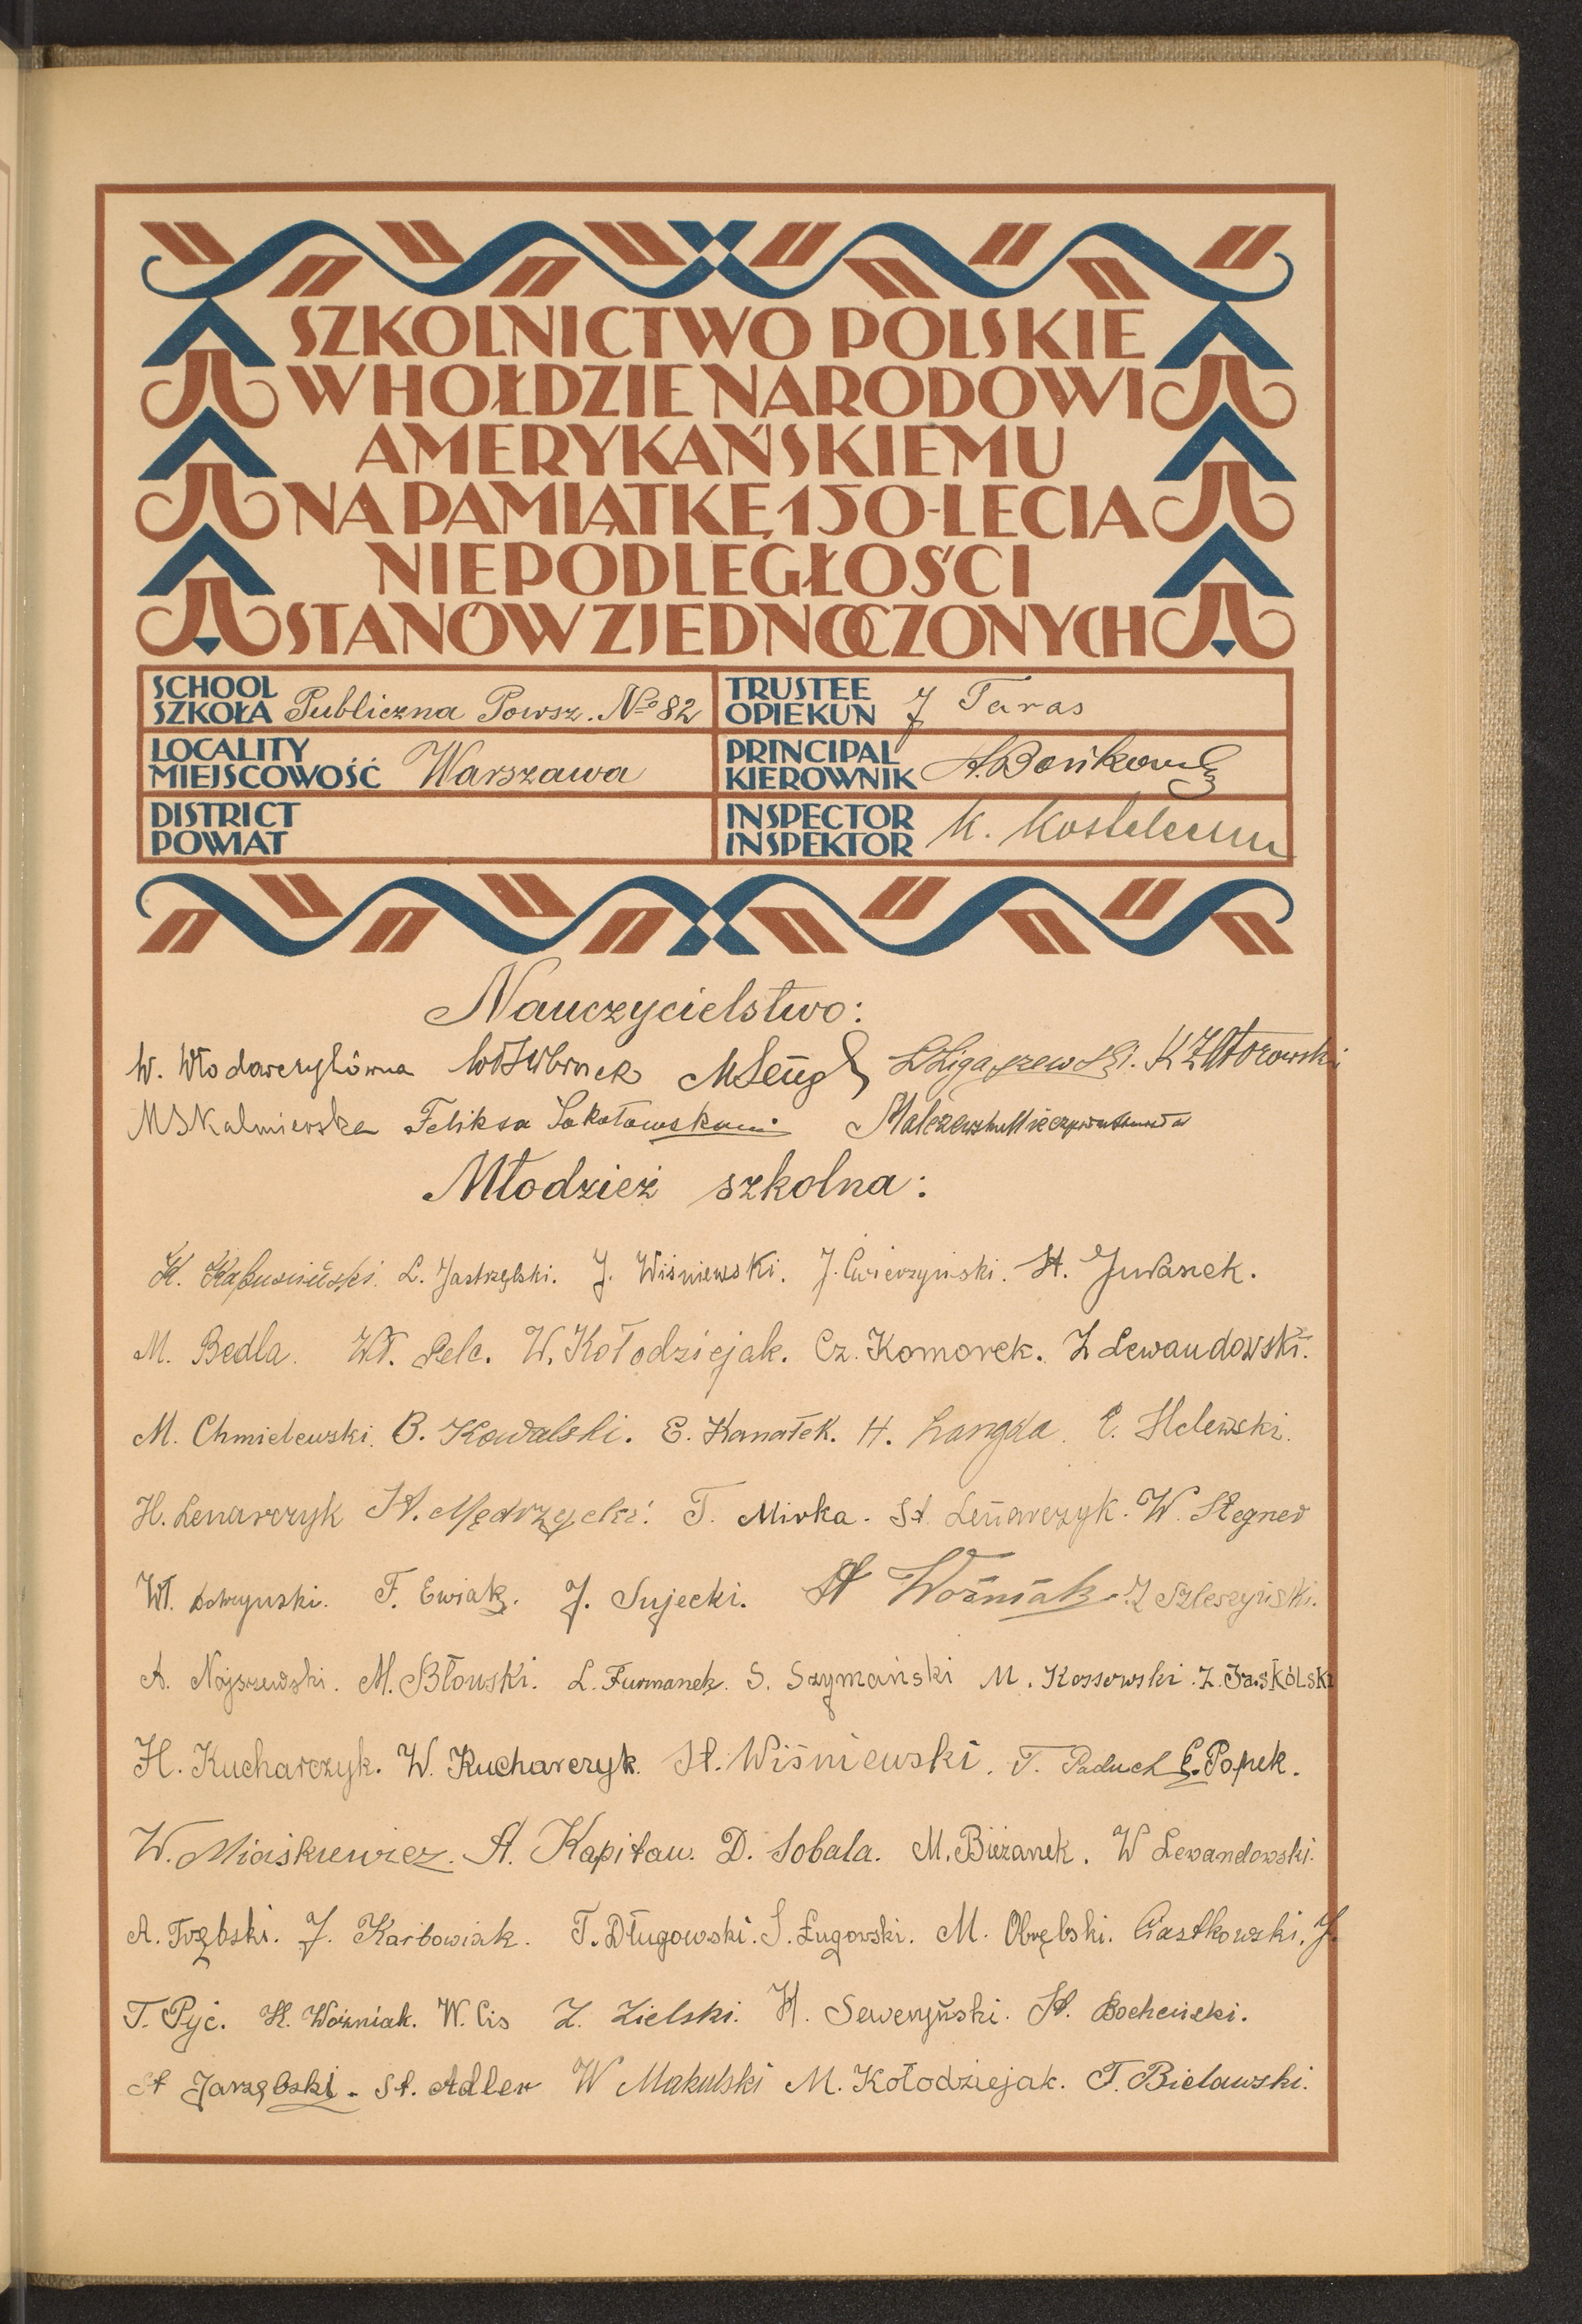 SZKOLNICTWO POLSKIE
W HOŁDZIE NARODOWI
AMERYKAŃSKIEMU
NA PAMIĄTKĘ 150-LECIA
NIEPODLEGŁOŚCI
STANÓW ZJEDNOCZONYCH
SCHOOL
SZKOŁA Publiczna Powsz. No 82
TRUSTEE
OPIEKUN J Taras
LOCALITY
MIEJSCOWOŚĆ Warszawa
PRINCIPAL
KIEROWNIK
DISTRICT
POWIAT
INSPECTOR
INSPEKTOR K.
Nauczycielstwo:
W. Włodarczykówna
Feliksa Sokołowska
Młodzież szkolna:
K. L. Jastrzębski. J. Wiśniewski. J. Ćwierzyński. St. Juranek.
M. Bedla. Wł. Pelc. W. Kołodziejak. Cz. Komorek. Z Lewandowski.
M. Chmielewski. B. Kowalski. E. Kanałek. H. Langda. E.
H. Lenarczyk St. Mędrzycki. T. Mirka. St. Leñarczyk. W. Stegner
Wł. F. Ewiak. J. Sujecki. St Woźniak.
A. Najszewski. M. Błoński. L. Furmanek. S. Szymański M. Kossowski. Z. Jaskólski
H. Kucharczyk. W. Kucharczyk. St. Wiśniewski. T. Paduch E. Popek.
W. Miaskiewicz. St. Kapitan. D. Sobala. M. Bieżanek. W Lewandowski.
A. Trębski. J. Karbowiak. T. Długowski. S. Ługowski. M. Obrębski. Ciastkowski, J.
T. Pyć. H. Woźniak. W. Cis Z. Zielski. H. Seweryński. St. Bocheński.
St Jarzębski. St. Adler W Makulski M. Kołodziejak. T. Bielawski.